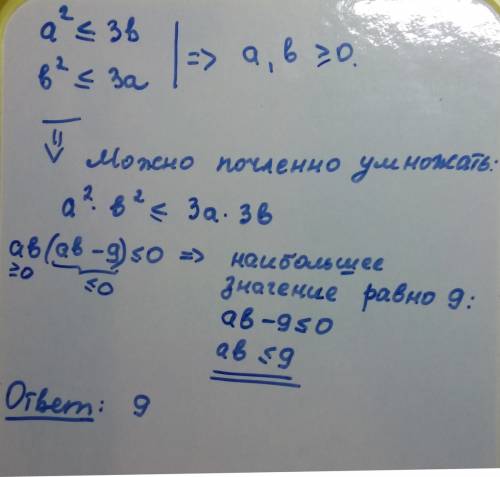 a² ≤ 3b
b² ≤ 3a | => a, b ≥ 0.
=> Можно почленно умножать:
a² · b² ≤ 3a · 3b
ab(ab - 9) ≤ 0 => наибольшее
≥0 ≤0 значение равно 9:
ab - 9 ≤ 0
ab ≤ 9
Ответ: 9